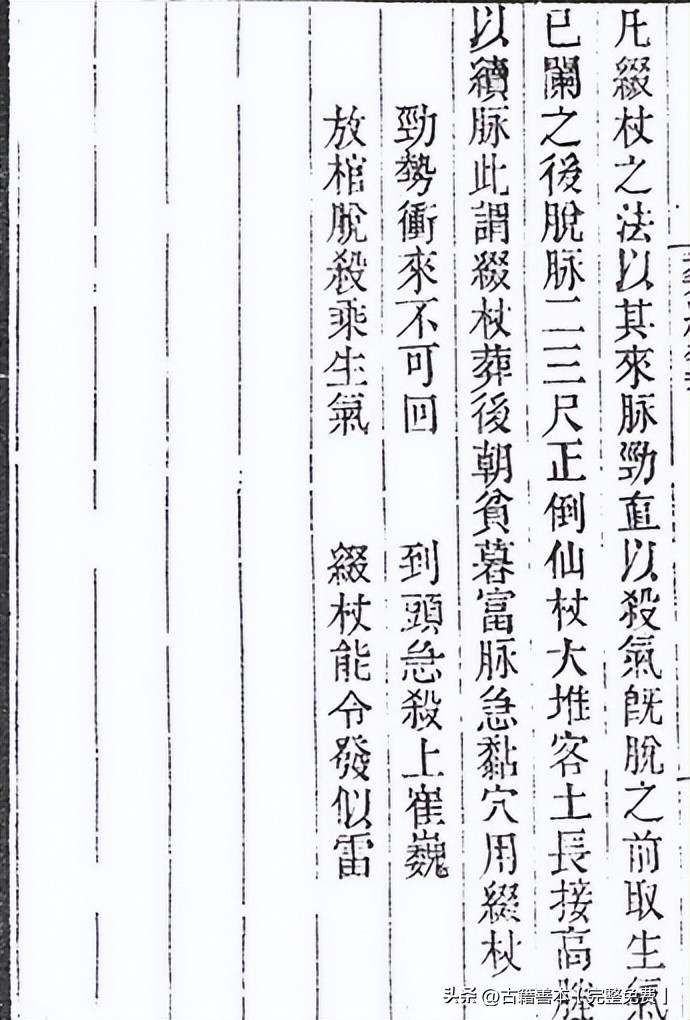 凡綴杖之法以其來脉勁直以殺氣旣脫之前取生氣
已闌之後脫脉二三尺正倒仙杖大堆客土長接高
以續脉此謂綴杖葬後朝貧暮富脉急黏穴用綴杖
勁勢衝來不可回　到頭急殺上崔巍
放棺脫殺乘生氣　綴杖能令發似雷
头条 @古籍善本【完整免费】